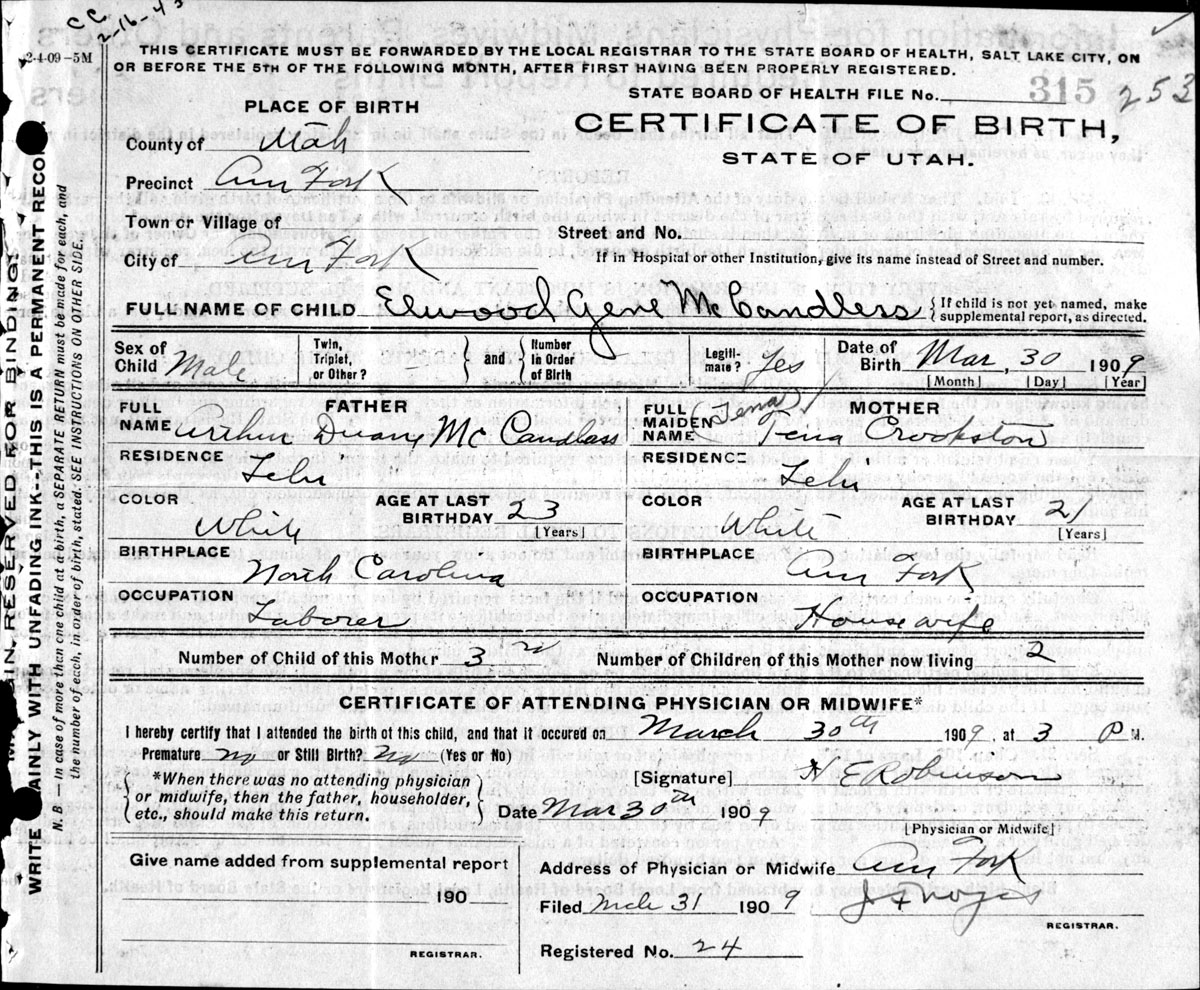 C C
2-16-43
2-4-09-5M
THIS CERTIFICATE MUST BE FORWARDED BY THE LOCAL REGISTRAR TO THE STATE BOARD OF HEALTH, SALT LAKE CITY, ON
OR BEFORE THE 5TH OF THE FOLLOWING MONTH, AFTER FIRST HAVING BEEN PROPERLY REGISTERED.
STATE BOARD OF HEALTH FILE No. 315 253
PLACE OF BIRTH
CERTIFICATE OF BIRTH,
STATE OF UTAH.
County of Utah
Precinct Am Fork
Town or Village of
Street and No.
City of Am Fork
If in Hospital or other Institution, give its name instead of Street and number.
FULL NAME OF CHILD Elwood Gene McCandless { If child is not yet named, make supplemental report, as directed.
Sex of Child Male Twin, Triplet, or Other? } and { Number in Order of Birth Legitimate? Yes Date of Birth Mar, 30 1909
[Month] [Day] [Year]
FATHER
FULL NAME Arthur Duany McCandlass
RESIDENCE Lehi
COLOR White AGE AT LAST BIRTHDAY 23 [Years]
BIRTHPLACE North Carolina
OCCUPATION Laborer
MOTHER
FULL MAIDEN NAME (Tena) Tena Crookston
RESIDENCE Lehi
COLOR White AGE AT LAST BIRTHDAY 21 [Years]
BIRTHPLACE Am Fork
OCCUPATION Housewife
Number of Child of this Mother 3rd Number of Children of this Mother now living 2
CERTIFICATE OF ATTENDING PHYSICIAN OR MIDWIFE*
I hereby certify that I attended the birth of this child, and that it occured on March 30th 1909, at 3 P M.
Premature no or Still Birth? No (Yes or No)
*When there was no attending physician
or midwife, then the father, householder,
etc., should make this return.
[Signature] H E Robinson
Date Mar 30th 1909
[Physician or Midwife]
Give name added from supplemental report
190
REGISTRAR.
Address of Physician or Midwife Am Fork
Filed Mch 31 1909
REGISTRAR.
Registered No. 24
RESERVED FOR BINDING.
WRITE PLAINLY WITH UNFADING INK---THIS IS A PERMANENT RECORD.
N. B. — In case of more then one child at a birth, a SEPARATE RETURN must be made for each, and
the number of each, in order of birth, stated. SEE INSTRUCTIONS ON OTHER SIDE.